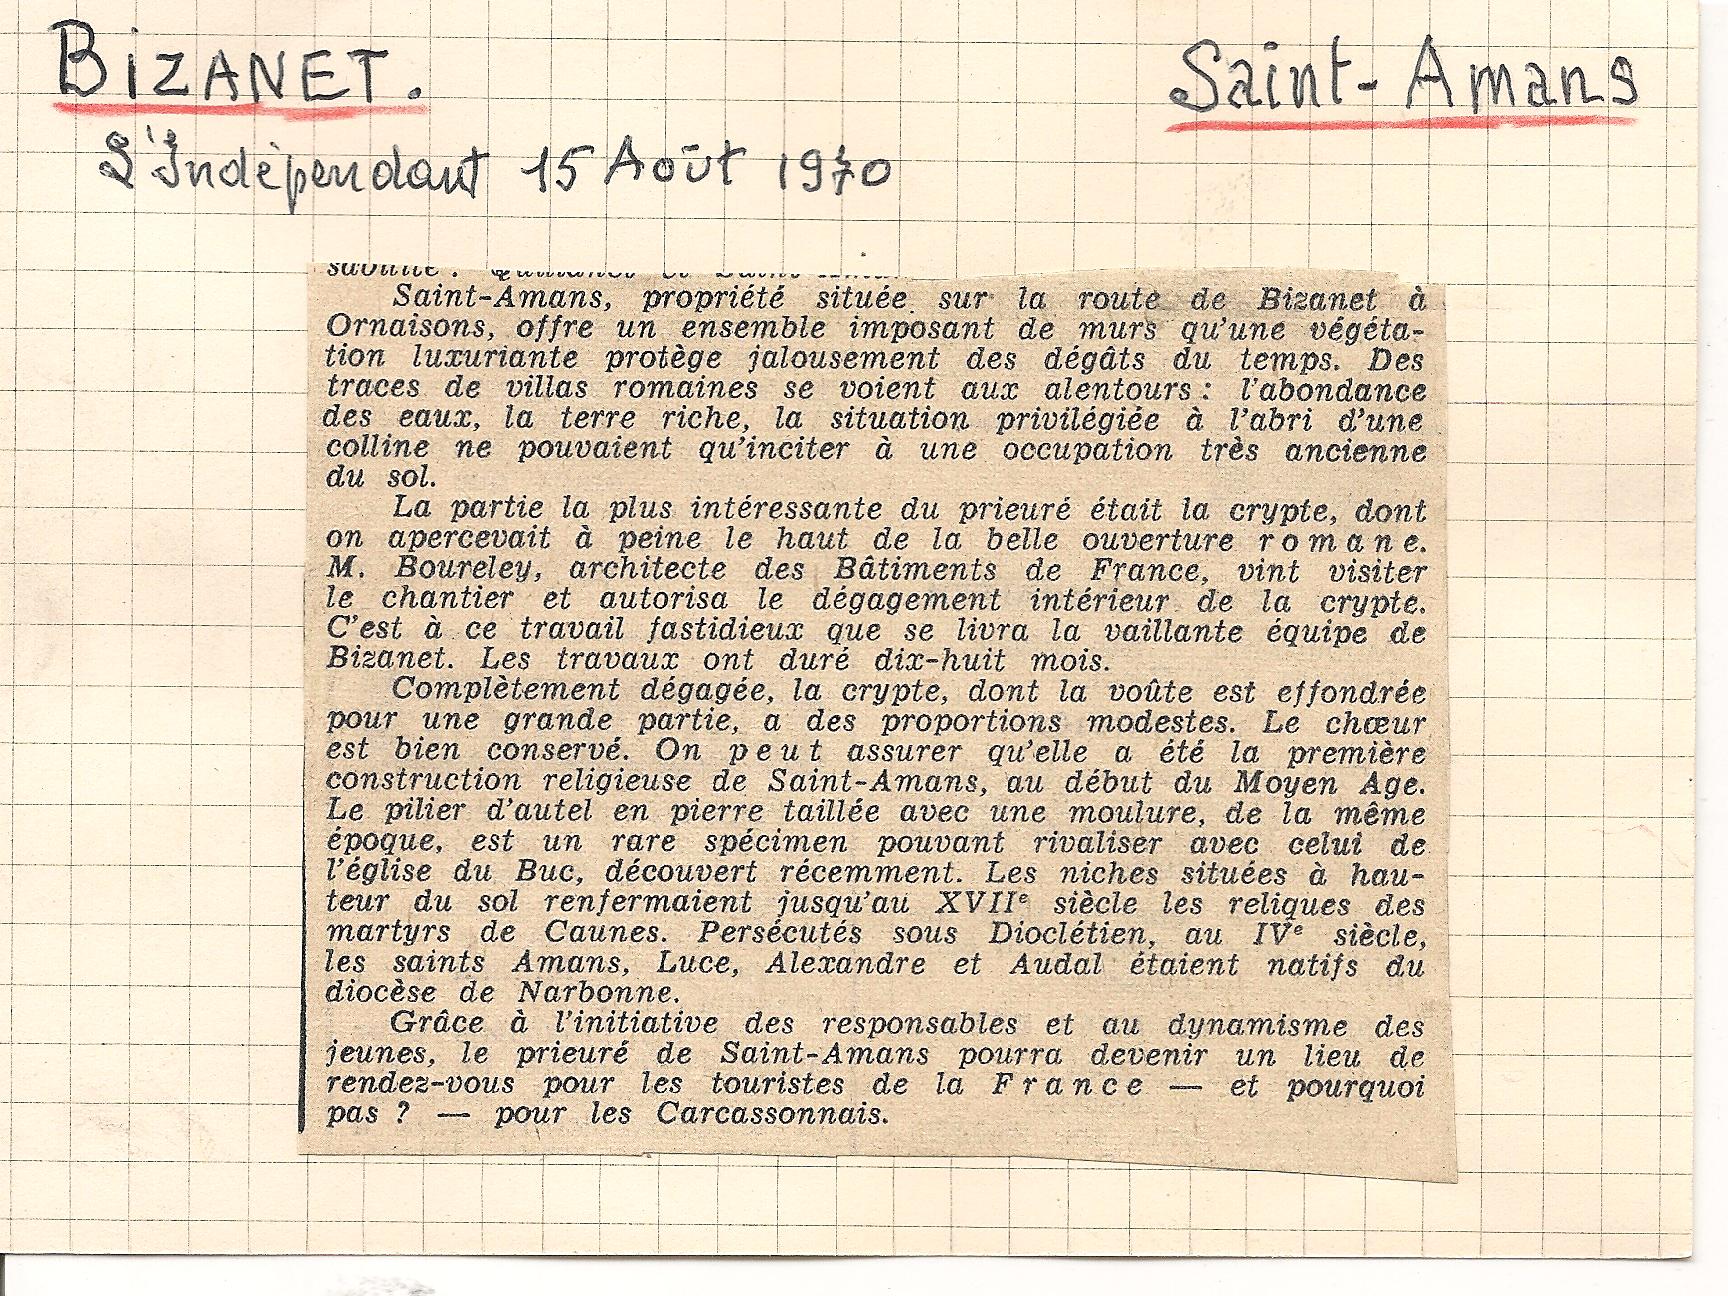 BIZANET.
Saint-Amans
L'Indépendant 15 Août 1970
Saint-Amans, propriété située sur la route de Bizanet à
Ornaisons, offre un ensemble imposant de murs qu'une végéta-
tion luxuriante protège jalousement des dégâts du temps. Des
traces de villas romaines se voient aux alentours : l'abondance
des eaux, la terre riche, la situation privilégiée à l'abri d'une
colline ne pouvaient qu'inciter à une occupation très ancienne
du sol.
La partie la plus intéressante du prieuré était la crypte, dont
on apercevait à peine le haut de la belle ouverture romane.
M. Boureley, architecte des Bâtiments de France, vint visiter
le chantier et autorisa le dégagement intérieur de la crypte.
C'est à ce travail fastidieux que se livra la vaillante équipe de
Bizanet. Les travaux ont duré dix-huit mois.
Complètement dégagée, la crypte, dont la voûte est effondrée
pour une grande partie, a des proportions modestes. Le chœur
est bien conservé. On peut assurer qu'elle a été la première
construction religieuse de Saint-Amans, au début du Moyen Age.
Le pilier d'autel en pierre taillée avec une moulure, de la même
époque, est un rare spécimen pouvant rivaliser avec celui de
l'église du Buc, découvert récemment. Les niches situées à hau-
teur du sol renfermaient jusqu'au XVIIe siècle les reliques des
martyrs de Caunes. Persécutés sous Dioclétien, au IVe siècle,
les saints Amans, Luce, Alexandre et Audal étaient natifs du
diocèse de Narbonne.
Grâce à l'initiative des responsables et au dynamisme des
jeunes, le prieuré de Saint-Amans pourra devenir un lieu de
rendez-vous pour les touristes de la France — et pourquoi
pas ? — pour les Carcassonnais.